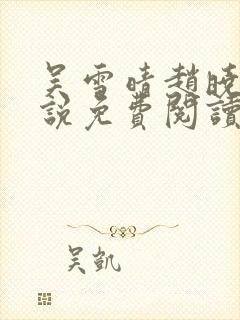 吴雪晴趙曉
說免費閱讀
吴凱